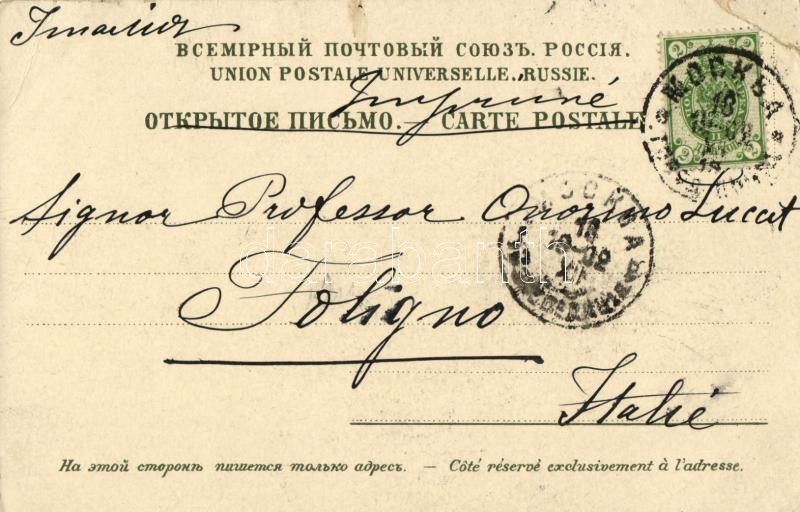 Италия
ВСЕМІРНЫЙ ПОЧТОВЫЙ СОЮЗЪ. РОССІЯ.
UNION POSTALE UNIVERSELLE. RUSSIE.
Imprimé
ОТКРЫТОЕ ПИСЬМО. — CARTE POSTALE
2 2
2 2
МОСКВА
18
Signor Professor Onorino Lucat
МОСКВА
18
darabanth
Foligno
Italie
На этой сторонѣ пишется только адресъ. — Côté réservé exclusivement à l'adresse.